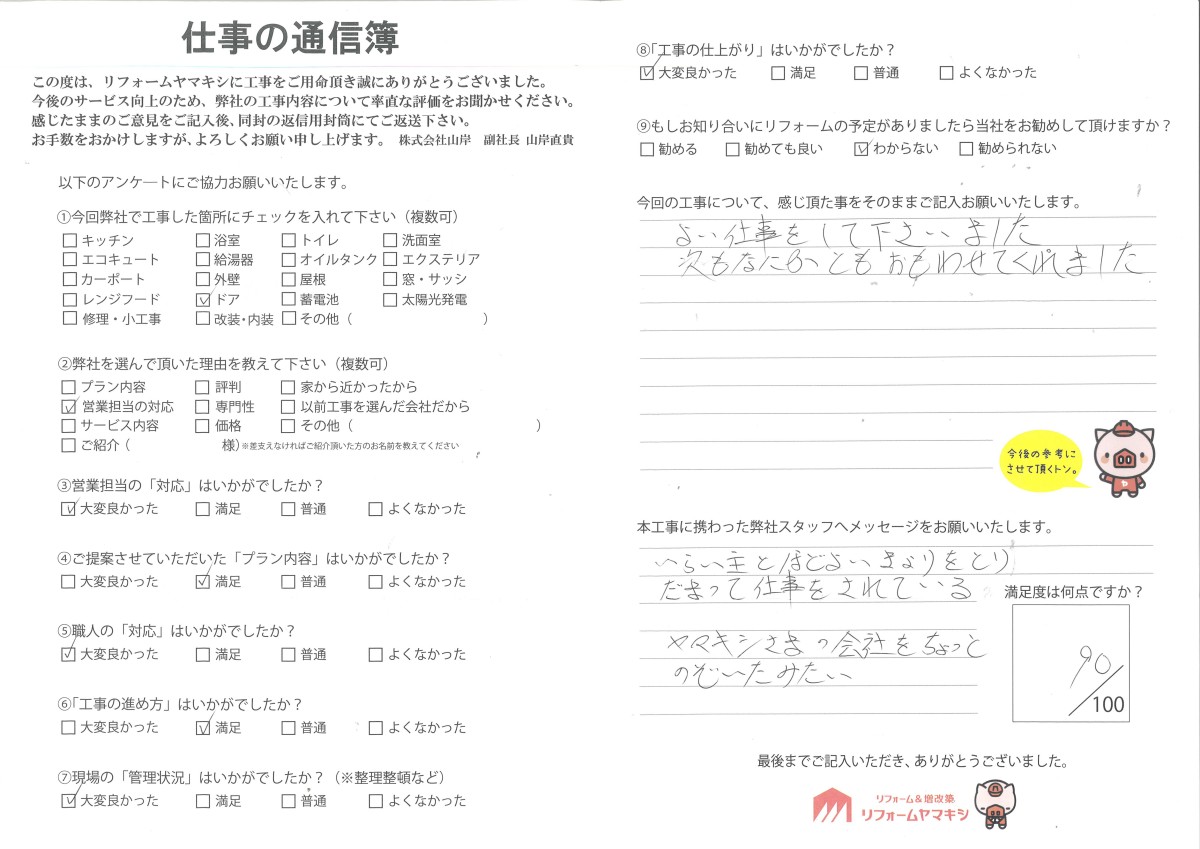 仕事の通信簿
この度は、リフォームヤマキシに工事をご用命頂き誠にありがとうございました。
今後のサービス向上のため、弊社の工事内容について率直な評価をお聞かせください。
感じたままのご意見をご記入後、同封の返信用封筒にてご返送下さい。
お手数をおかけしますが、よろしくお願い申し上げます。 株式会社山岸 副社長 山岸直貴
以下のアンケートにご協力お願いいたします。
①今回弊社で工事した箇所にチェックを入れて下さい（複数可）
□ キッチン □ 浴室 □ トイレ □ 洗面室
□ エコキュート □ 給湯器 □ オイルタンク □ エクステリア
□ カーポート □ 外壁 □ 屋根 □ 窓・サッシ
□ レンジフード ☑ ドア □ 蓄電池 □ 太陽光発電
□ 修理・小工事 □ 改装・内装 □ その他（ ）
②弊社を選んで頂いた理由を教えて下さい（複数可）
□ プラン内容 □ 評判 □ 家から近かったから
☑ 営業担当の対応 □ 専門性 □ 以前工事を選んだ会社だから
□ サービス内容 □ 価格 □ その他（ ）
□ ご紹介（ 様）※差支えなければご紹介頂いた方のお名前を教えてください
③営業担当の「対応」はいかがでしたか？
☑ 大変良かった □ 満足 □ 普通 □ よくなかった
④ご提案させていただいた「プラン内容」はいかがでしたか？
□ 大変良かった ☑ 満足 □ 普通 □ よくなかった
⑤職人の「対応」はいかがでしたか？
☑ 大変良かった □ 満足 □ 普通 □ よくなかった
⑥「工事の進め方」はいかがでしたか？
□ 大変良かった ☑ 満足 □ 普通 □ よくなかった
⑦現場の「管理状況」はいかがでしたか？（※整理整頓など）
☑ 大変良かった □ 満足 □ 普通 □ よくなかった
⑧「工事の仕上がり」はいかがでしたか？
☑ 大変良かった □ 満足 □ 普通 □ よくなかった
⑨もしお知り合いにリフォームの予定がありましたら当社をお勧めして頂けますか？
□ 勧める □ 勧めても良い ☑ わからない □ 勧められない
今回の工事について、感じ頂た事をそのままご記入お願いいたします。
よい仕事をして下さいました
次もなにかともおもわせてくれました
今後の参考に
させて頂くトン。
本工事に携わった弊社スタッフへメッセージをお願いいたします。
いらい主とほどよいきょりをとり
だまって仕事をされている
ヤマキシさまの会社をちょっと
のぞいたみたい
満足度は何点ですか？
90/100
最後までご記入いただき、ありがとうございました。
リフォーム＆増改築
リフォームヤマキシ